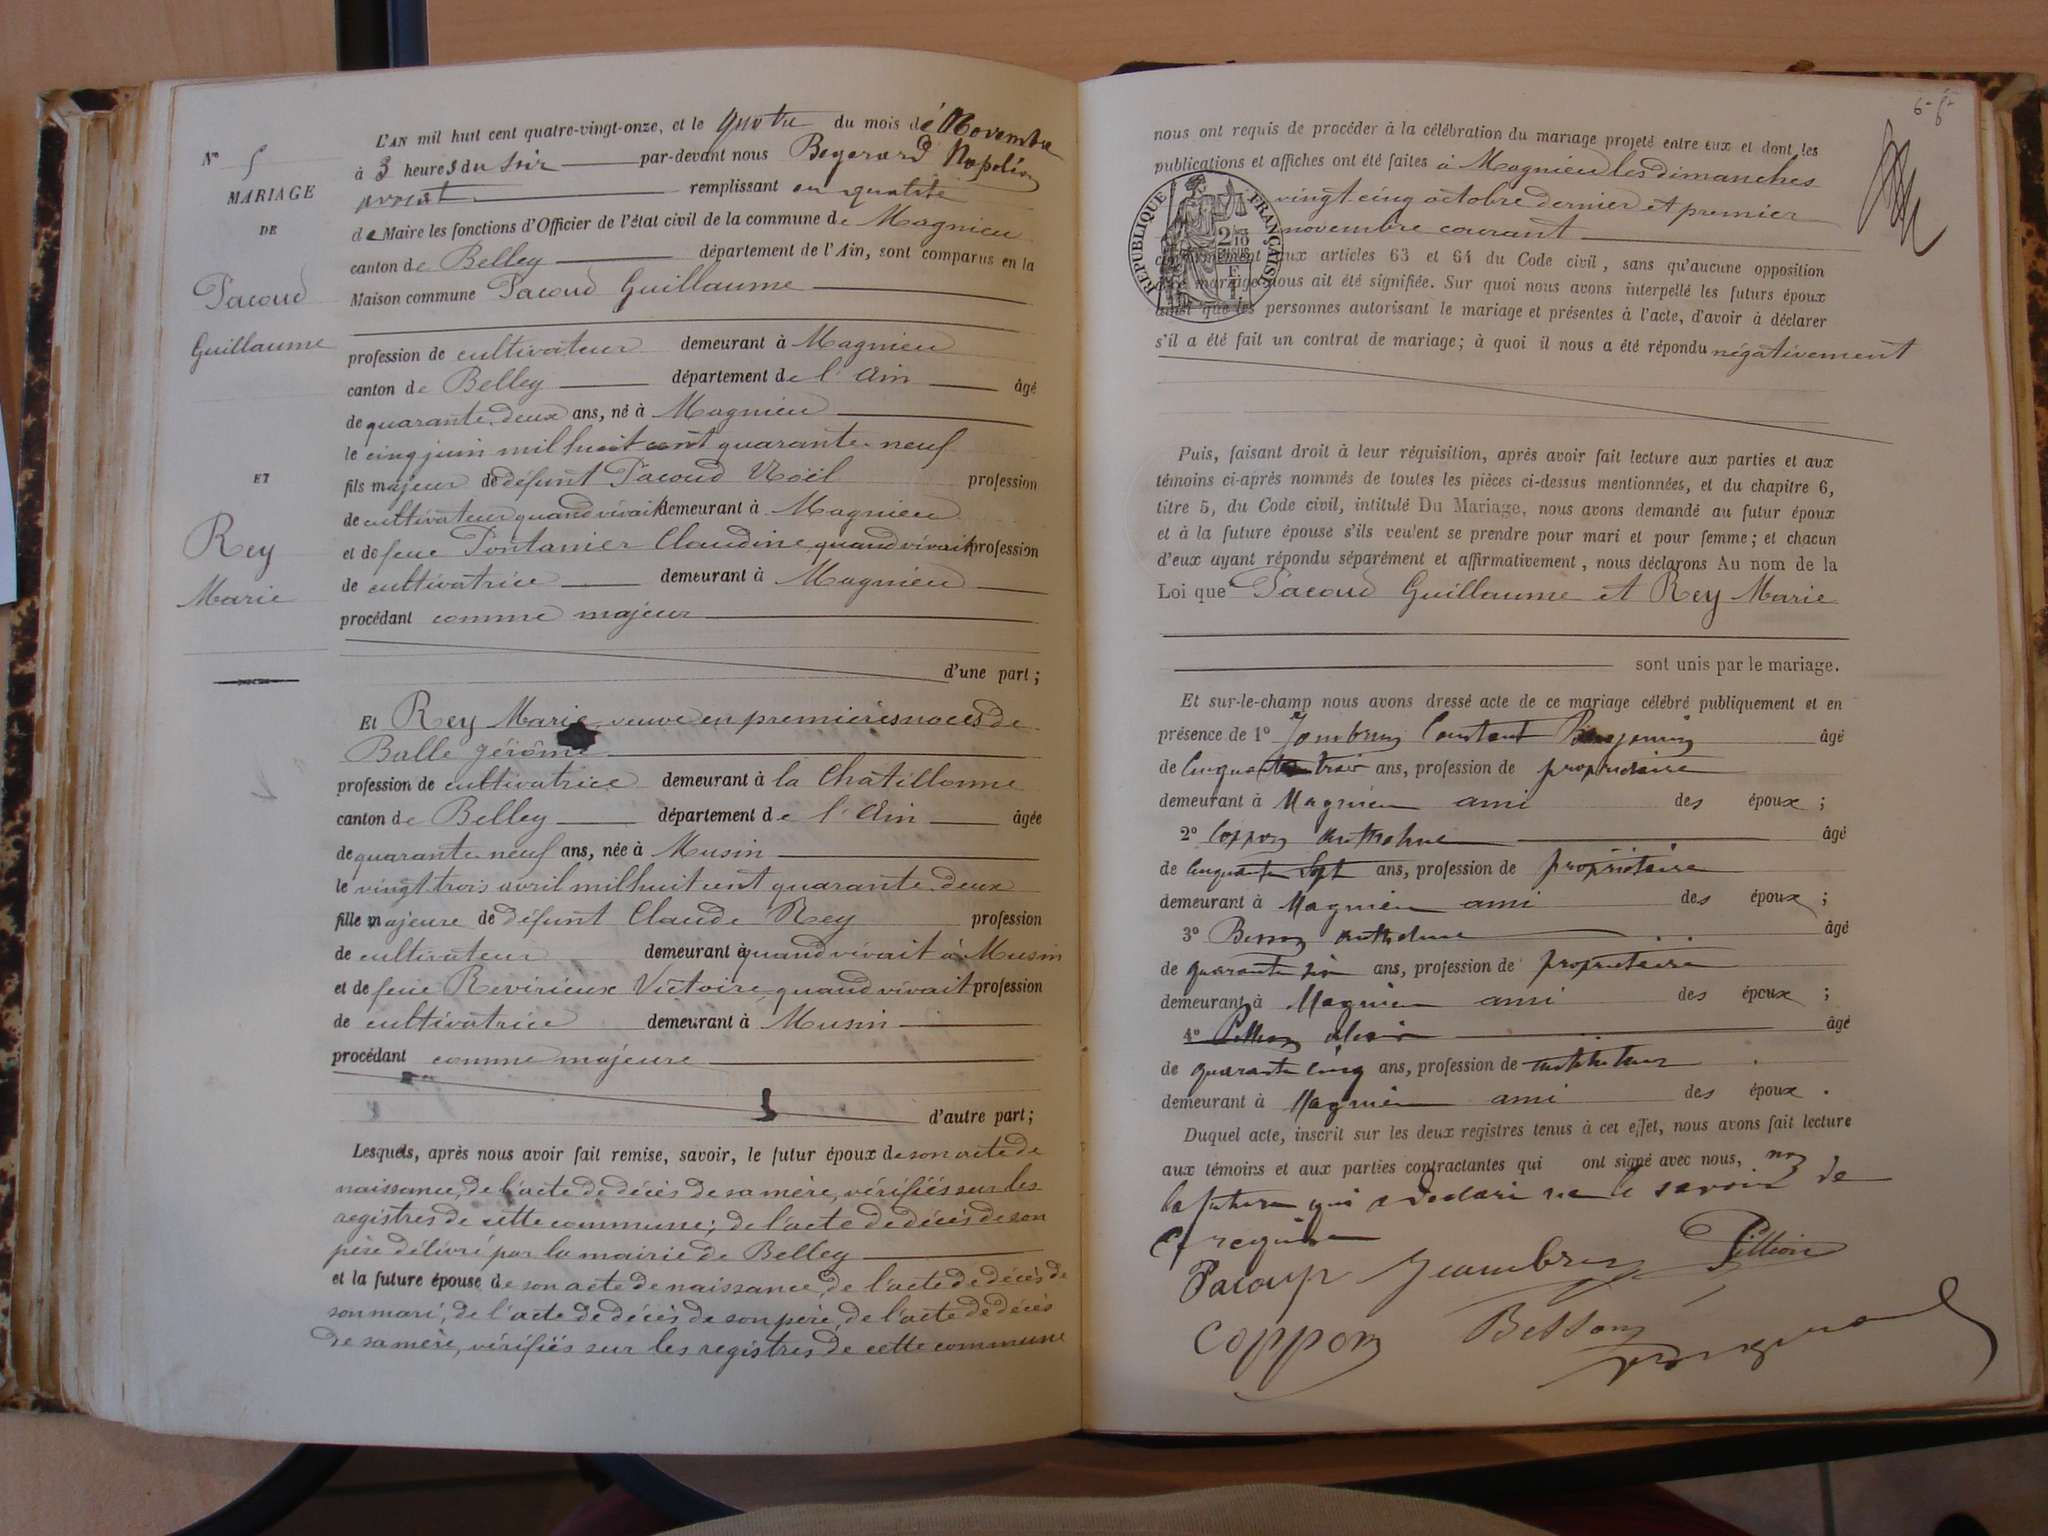 N° 5
MARIAGE
DE
Pacoud
Guillaume
ET
Rey
Marie
L'AN mil huit cent quatre-vingt-onze, et le quatre du mois de Novembre
à 3 heures du soir par-devant nous Bugerard Napoléon
remplissant en qualité
de Maire les fonctions d'Officier de l'état civil de la commune de Magnieu
canton de Belley département de l'Ain, sont comparus en la
Maison commune Pacoud Guillaume
profession de cultivateur demeurant à Magnieu
canton de Belley département de l'Ain âgé
de quarante-deux ans, né à Magnieu
le cinq juin mil huit cent quarante-neuf
fils majeur de défunt Pacoud Noël profession
de cultivateur quand vivait demeurant à Magnieu
et de feue Pontanier Claudine quand vivait profession
de cultivatrice demeurant à Magnieu
procédant comme majeur
d'une part ;
Et Rey Marie veuve en premières noces de
Balle Jérôme
profession de cultivatrice demeurant à la Châtillonne
canton de Belley département de l'Ain âgée
de quarante-neuf ans, née à Musin
le vingt trois avril mil huit cent quarante-deux
fille majeure de défunt Claude Rey profession
de cultivateur demeurant à quand vivait à Musin
et de feue Revirieux Victoire, quand vivait profession
de cultivatrice demeurant à Musin
procédant comme majeure
d'autre part ;
Lesquels, après nous avoir fait remise, savoir, le futur époux de son acte de
naissance, de l'acte de décès de sa mère, vérifiés sur les
registres de cette commune ; de l'acte de décès de son
père délivré par la mairie de Belley
et la future épouse de son acte de naissance, de l'acte de décès de
son mari, de l'acte de décès de son père, de l'acte de décès
de sa mère, vérifiés sur les registres de cette commune
nous ont requis de procéder à la célébration du mariage projeté entre eux et dont les
publications et affiches ont été faites à Magnieu les dimanches
vingt cinq octobre dernier et premier
novembre courant
RÉPUBLIQUE FRANÇAISE
conformément aux articles 63 et 64 du Code civil, sans qu'aucune opposition
mariage nous ait été signifiée. Sur quoi nous avons interpellé les futurs époux
ainsi que les personnes autorisant le mariage et présentes à l'acte, d'avoir à déclarer
s'il a été fait un contrat de mariage ; à quoi il nous a été répondu négativement
Puis, faisant droit à leur réquisition, après avoir fait lecture aux parties et aux
témoins ci-après nommés de toutes les pièces ci-dessus mentionnées, et du chapitre 6,
titre 5, du Code civil, intitulé Du Mariage, nous avons demandé au futur époux
et à la future épouse s'ils veulent se prendre pour mari et pour femme ; et chacun
d'eux ayant répondu séparément et affirmativement, nous déclarons Au nom de la
Loi que Pacoud Guillaume et Rey Marie
sont unis par le mariage.
Et sur-le-champ nous avons dressé acte de ce mariage célébré publiquement et en
présence de 1° Constant Benjamin âgé
de cinquante trois ans, profession de propriétaire
demeurant à Magnieu ami des époux ;
2° Coppon Anthelme âgé
de cinquante sept ans, profession de propriétaire
demeurant à Magnieu ami des époux ;
3° Besson Anthelme âgé
de quarante six ans, profession de propriétaire
demeurant à Magnieu ami des époux ;
4° Pillion âgé
de quarante cinq ans, profession de instituteur
demeurant à Magnieu ami des époux.
Duquel acte, inscrit sur les deux registres tenus à cet effet, nous avons fait lecture
aux témoins et aux parties contractantes qui ont signé avec nous, non
la future qui a déclaré ne le savoir de
ce requise
Pacoup Jeambrun Pillion
Coppon Besson